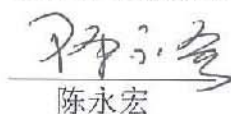 陈永宏
陈永宏